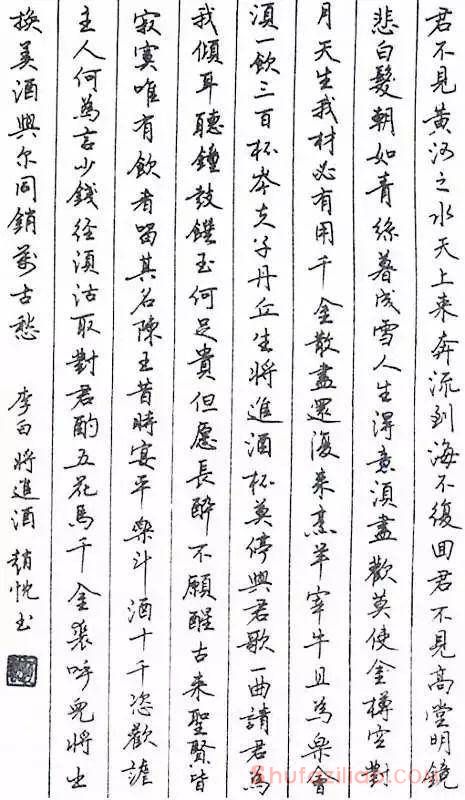 君不見黃河之水天上来奔流到海不復回君不見高堂明鏡
悲白髮朝如青絲暮成雪人生得意須盡歡莫使金樽空對
月天生我材必有用千金散盡還復来烹羊宰牛且為樂會
須一飲三百杯岑夫子丹丘生將進酒杯莫停與君歌一曲請君為
我傾耳聽鐘鼓饌玉何足貴但愿長醉不願醒古来聖賢皆
寂寞唯有飲者留其名陳王昔時宴平樂斗酒十千恣歡謔
主人何為言少錢徑須沽取對君酌五花馬千金裘呼兒將出
換美酒與尔同銷萬古愁 李白將進酒 趙悅玉
shufaziliao.com